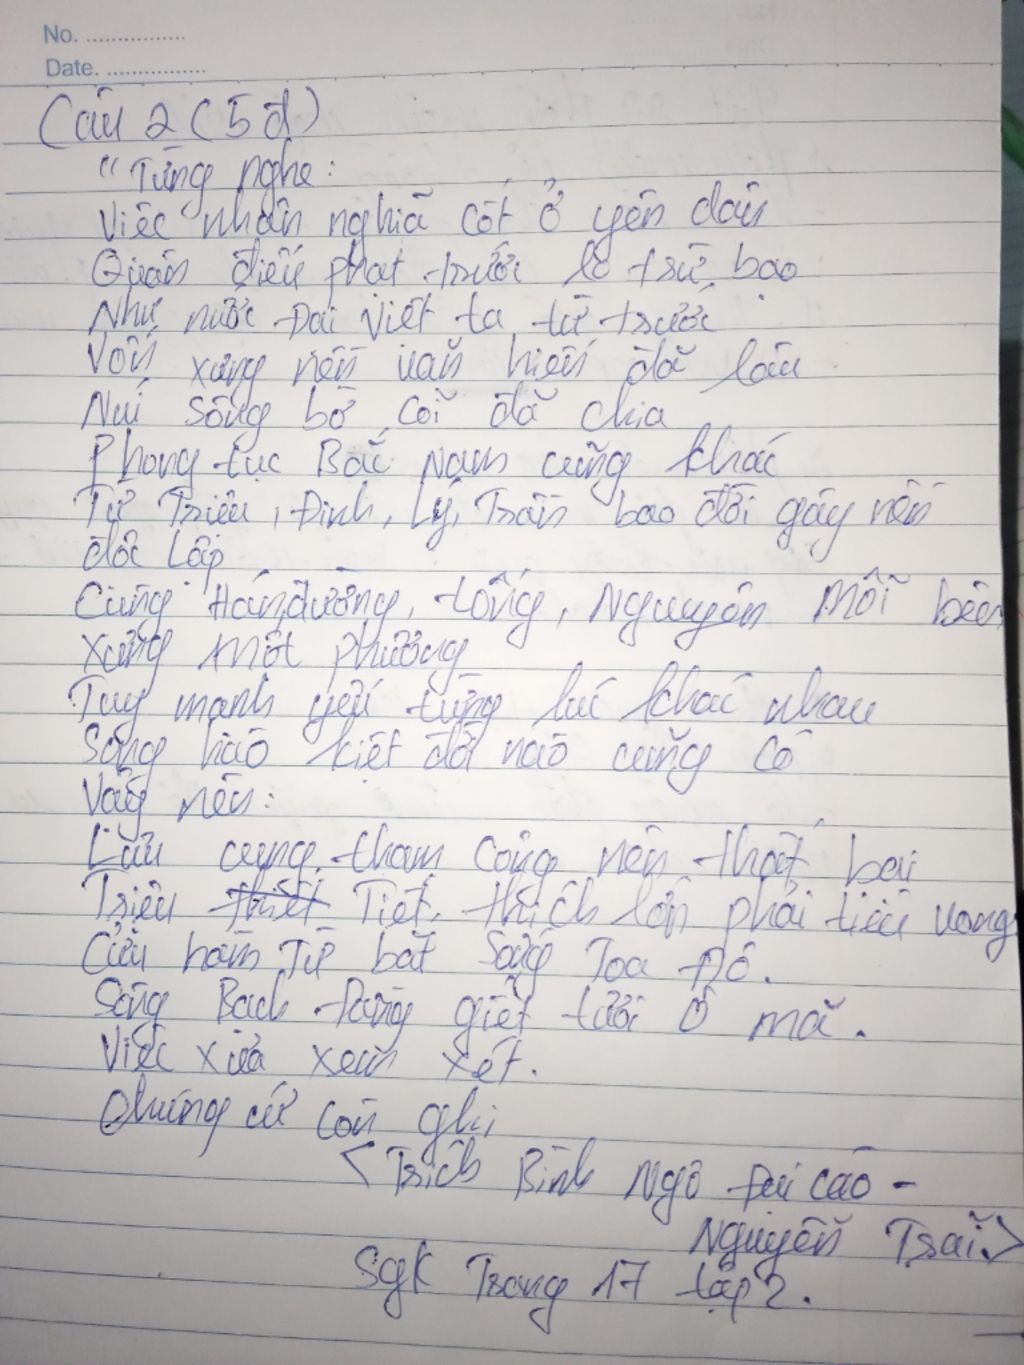 No. ................
Date. ................
Câu 2 (5 đ)
"Từng nghe:
Việc nhân nghĩa cốt ở yên dân
Quân điếu phạt trước lo trừ bạo
Như nước Đại Việt ta từ trước
Vốn xưng nền văn hiến đã lâu
Núi sông bờ cõi đã chia
Phong tục Bắc Nam cũng khác
Từ Triệu, Đinh, Lý, Trần bao đời gây nền
độc lập
Cùng Hán, đường, tống, Nguyên mỗi bên
xưng một phương
Tuy mạnh yếu từng lúc khác nhau
Song hào kiệt đời nào cũng có
Vậy nên:
Lưu cung tham công nên thất bại
Triệu Tiết thích lớn phải tiêu vong
Cửa hàm Tử bắt sống Toa Đô.
Sông Bạch Đằng giết tươi Ô mã.
Việc xưa xem xét.
Chứng cứ còn ghi
<Trích Bình Ngô Đại cáo -
Nguyễn Trãi>
Sgk Trang 17 tập 2.